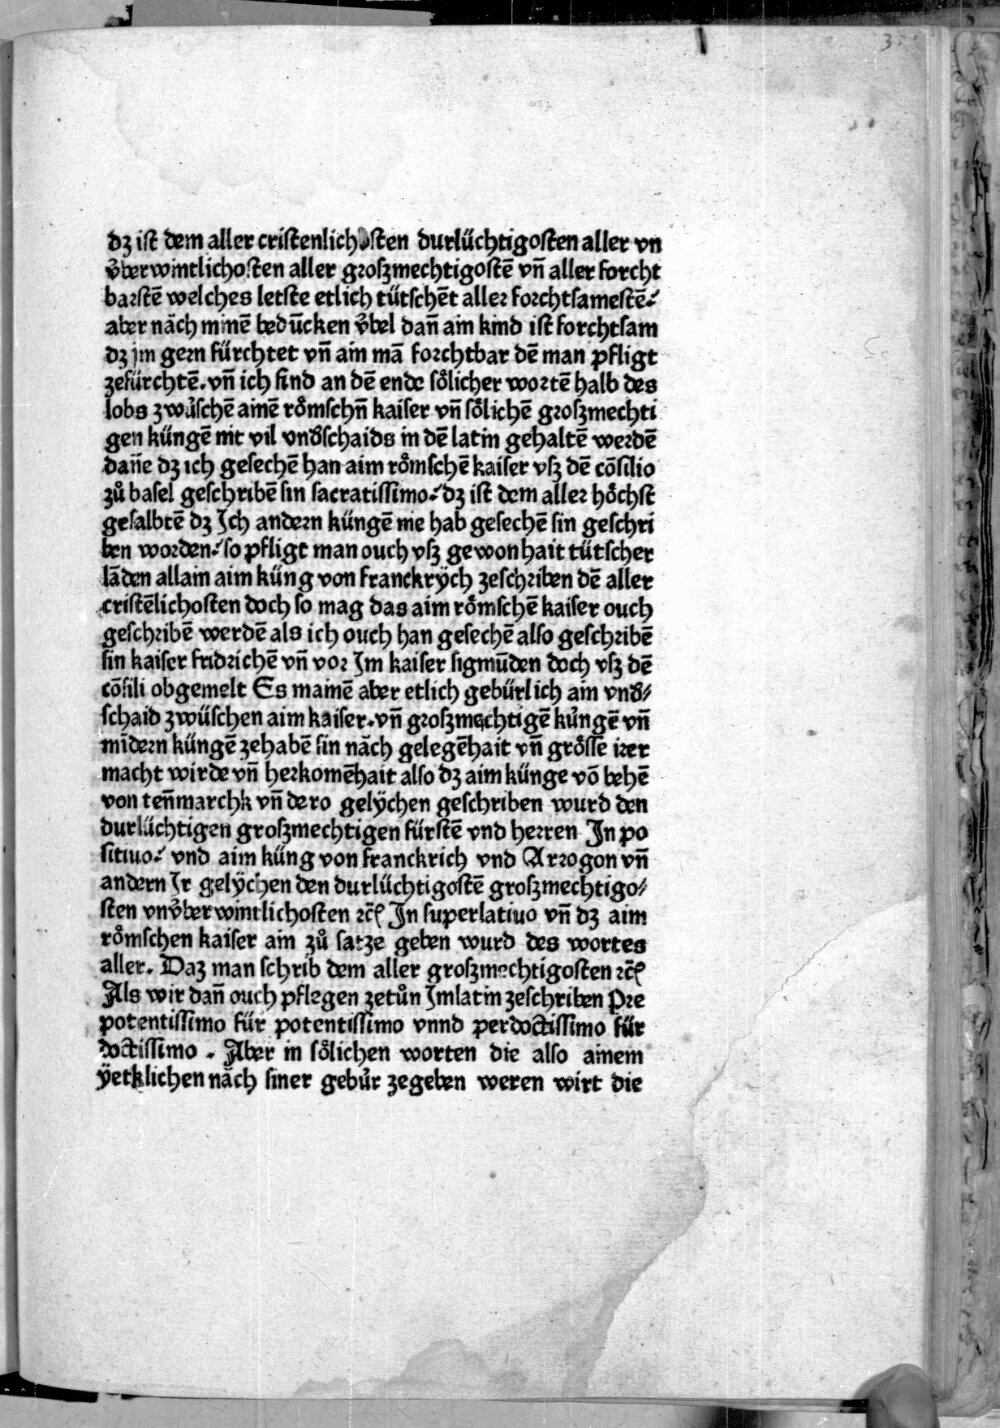 dz ist dem aller cristenlichosten durlüchtigosten aller vn
vͤberwintlichosten aller groszmechtigostē vn̄ aller forcht
barstē welches letste etlich tütschēt aller forchtsamestē⸗
aber nāch minē bedūcken vͤbel dan̄ ain kind ist forchtsam
dz im gern fürchtet vn̄ ain mā forchtbar dē man pfligt
zefürchtē. vn̄ ich find an dē ende soͤlicher wortē halb des
lobs zwuͤschē ainē roͤmschn̄ kaiser vn̄ soͤlichē groszmechti
gen küngē nit vil vndschaids in dē latin gehaltē werdē
dan̄e dz ich gesechē han aim roͤmschē kaiser vsz dē cōsilio
zuͦ basel geschribē sin sacratissimo⸗ dz ist dem aller hoͤchst
gesalbtē dz Ich andern küngē nie hab gesechē sin geschri
ben worden⸗ so pfligt man ouch vsz gewonhait tütscher
lāden allain aim küng von franckrÿch zeschriben dē aller
cristēlichosten doch so mag das aim roͤmschē kaiser ouch
geschribē werdē als ich ouch han gesechē also geschribē
sin kaiser fridrichē vn̄ vor Im kaiser sigmūden doch vsz dē
cōsili obgemelt Es mainē aber etlich gebürlich ain vnd⸗
schaid zwüschen aim kaiser. vn̄ groszmechtigē kuͤngē vn̄
mīdern küngē zehabē sin nāch gelegēhait vn̄ groͤssē irer
macht wirde vn̄ herkomēhait also dz aim künge vō behē
von ten̄marchk vn̄ dero gelÿchen geschriben wurd den
durlüchtigen groszmechtigen fürstē vnd herren In po
sitiuo⸗ vnd aim küng von franckrich vnd Arrogon vn̄
andern Ir gelÿchen den durlüchtigostē groszmechtigo⸗
sten vnvͤberwintlichosten ꝛc̄ In superlatiuo vn̄ dz aim
roͤmschen kaiser ain zuͦ satze geben wurd des wortes
aller. Daz man schrib dem aller groszmechtigosten ꝛc̄
Als wir dan̄ ouch pflegen zetuͦn Imlatin zeschriben Pre
potentissimo für potentissimo vnnd perdoctissimo für
doctissimo . Aber in soͤlichen worten die also ainem
ÿetklichen nāch siner gebuͤr zegeben weren wirt die